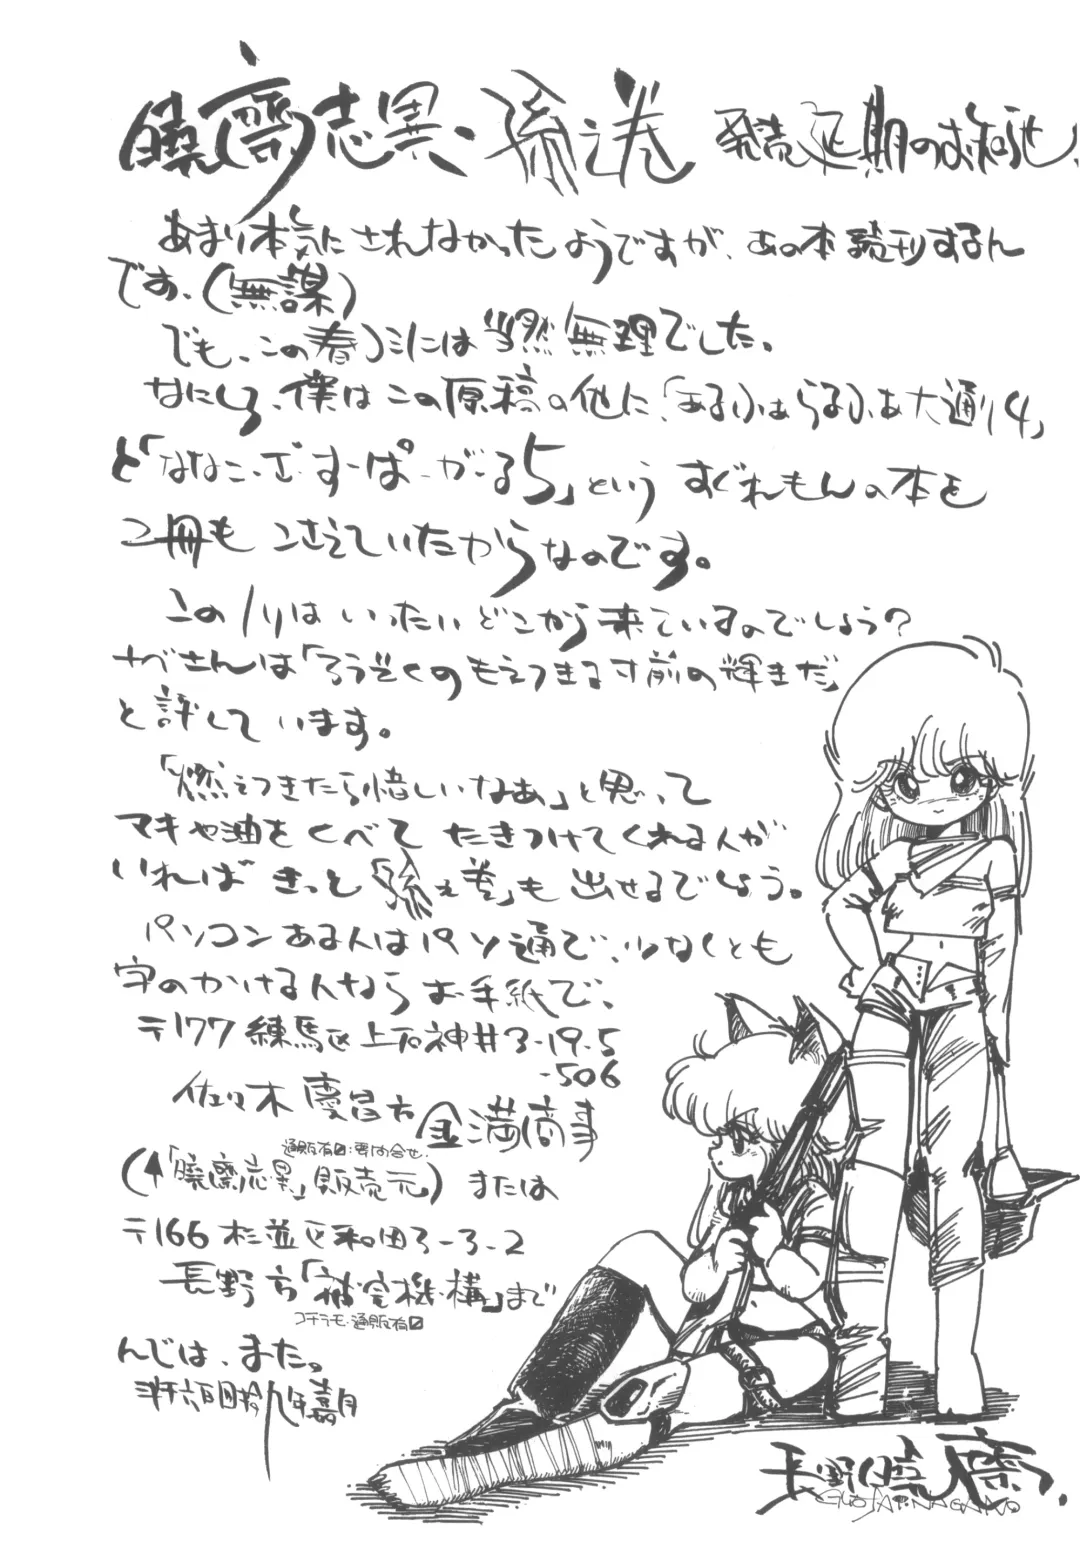 曉齋志異、孫之巻 発売延期のお知らせ、
あまり本気にされなかったようですが、あの本続刊するん
です、(無謀)
でも、この春コミには当然無理でした。
なにしろ、僕はこの原稿の他に、「あるふぁらるふぁ大通り4」
と「ななこ・ざ・すーぱーがーる5」というすぐれもんの本を
2冊もこさえていたからなのです。
このノリはいったいどこから来ているのでしょう?
ナベさんは「ろうそくのもえつきる寸前の輝きだ」
と評しています。
「燃えつきたら惜しいなあ」と思って
マキや油をくべてたきつけてくれる人が
いればきっと「孫之巻」も出せるでしょう。
パソコンある人はパソ通で、少なくとも
字のかける人ならお手紙で、
〒177 練馬区上石神井3-19-5
-506
佐々木慶昌方 金満商事
通販有□:要問合せ.
(↑「曉齋志異」販売元) または
〒166 杉並区和田3-3-2
長野方「被害機構」まで
コチラモ・通販有□
んでは、また。
弐千六百四拾九年嘉月
長野曉齋、
NAGANO